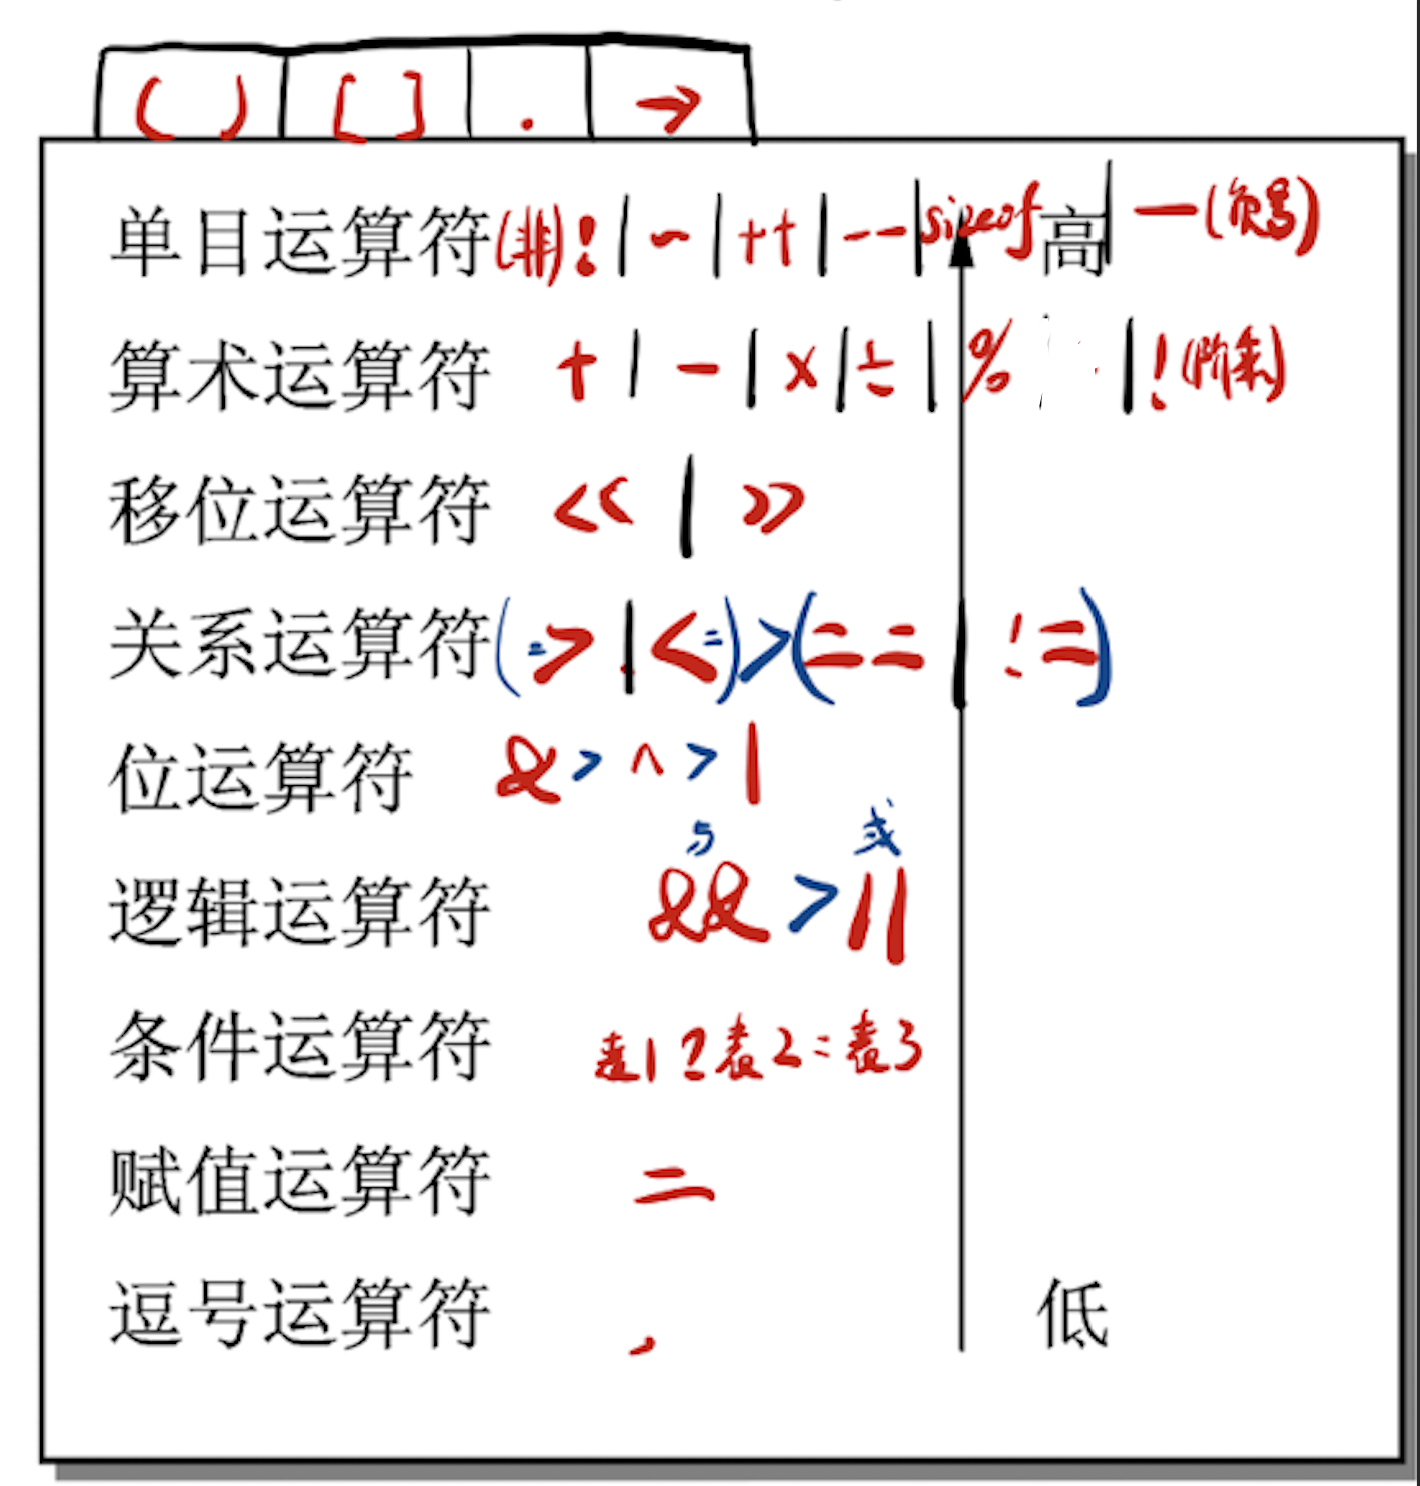 ( ) [ ] . →
单目运算符 (非)! | ~ | ++ | -- | sizeof 高 | — (负号)
算术运算符 + | - | × | ÷ | % | ! (阶乘)
移位运算符 << | >>
关系运算符 (=> | <=) > (== | !=)
位运算符 & > ^ > |
与 或
逻辑运算符 && > ||
条件运算符 表1 ? 表2 : 表3
赋值运算符 =
逗号运算符 , 低